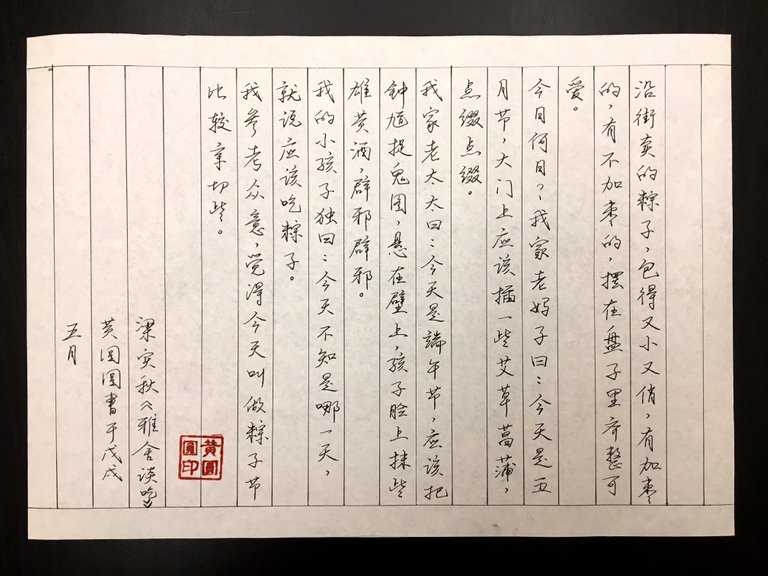 沿街卖的粽子，包得又小又俏，有加枣
的，有不加枣的，摆在盘子里齐整可
爱。
今日何日？，我家老妈子曰：今天是五
月节，大门上应该插一些艾草菖蒲，
点缀点缀。
我家老太太曰：今天是端午节，应该把
钟馗捉鬼图，悬在壁上，孩子脸上抹些
雄黄酒，辟邪辟邪。
我的小孩子独曰：今天不知是哪一天，
就说应该吃粽子。
我参考众意，觉得今天叫做粽子节
比较亲切些。
梁实秋《雅舍谈吃》
黄圆圆书于戊戌
五月
黄圆
圆印